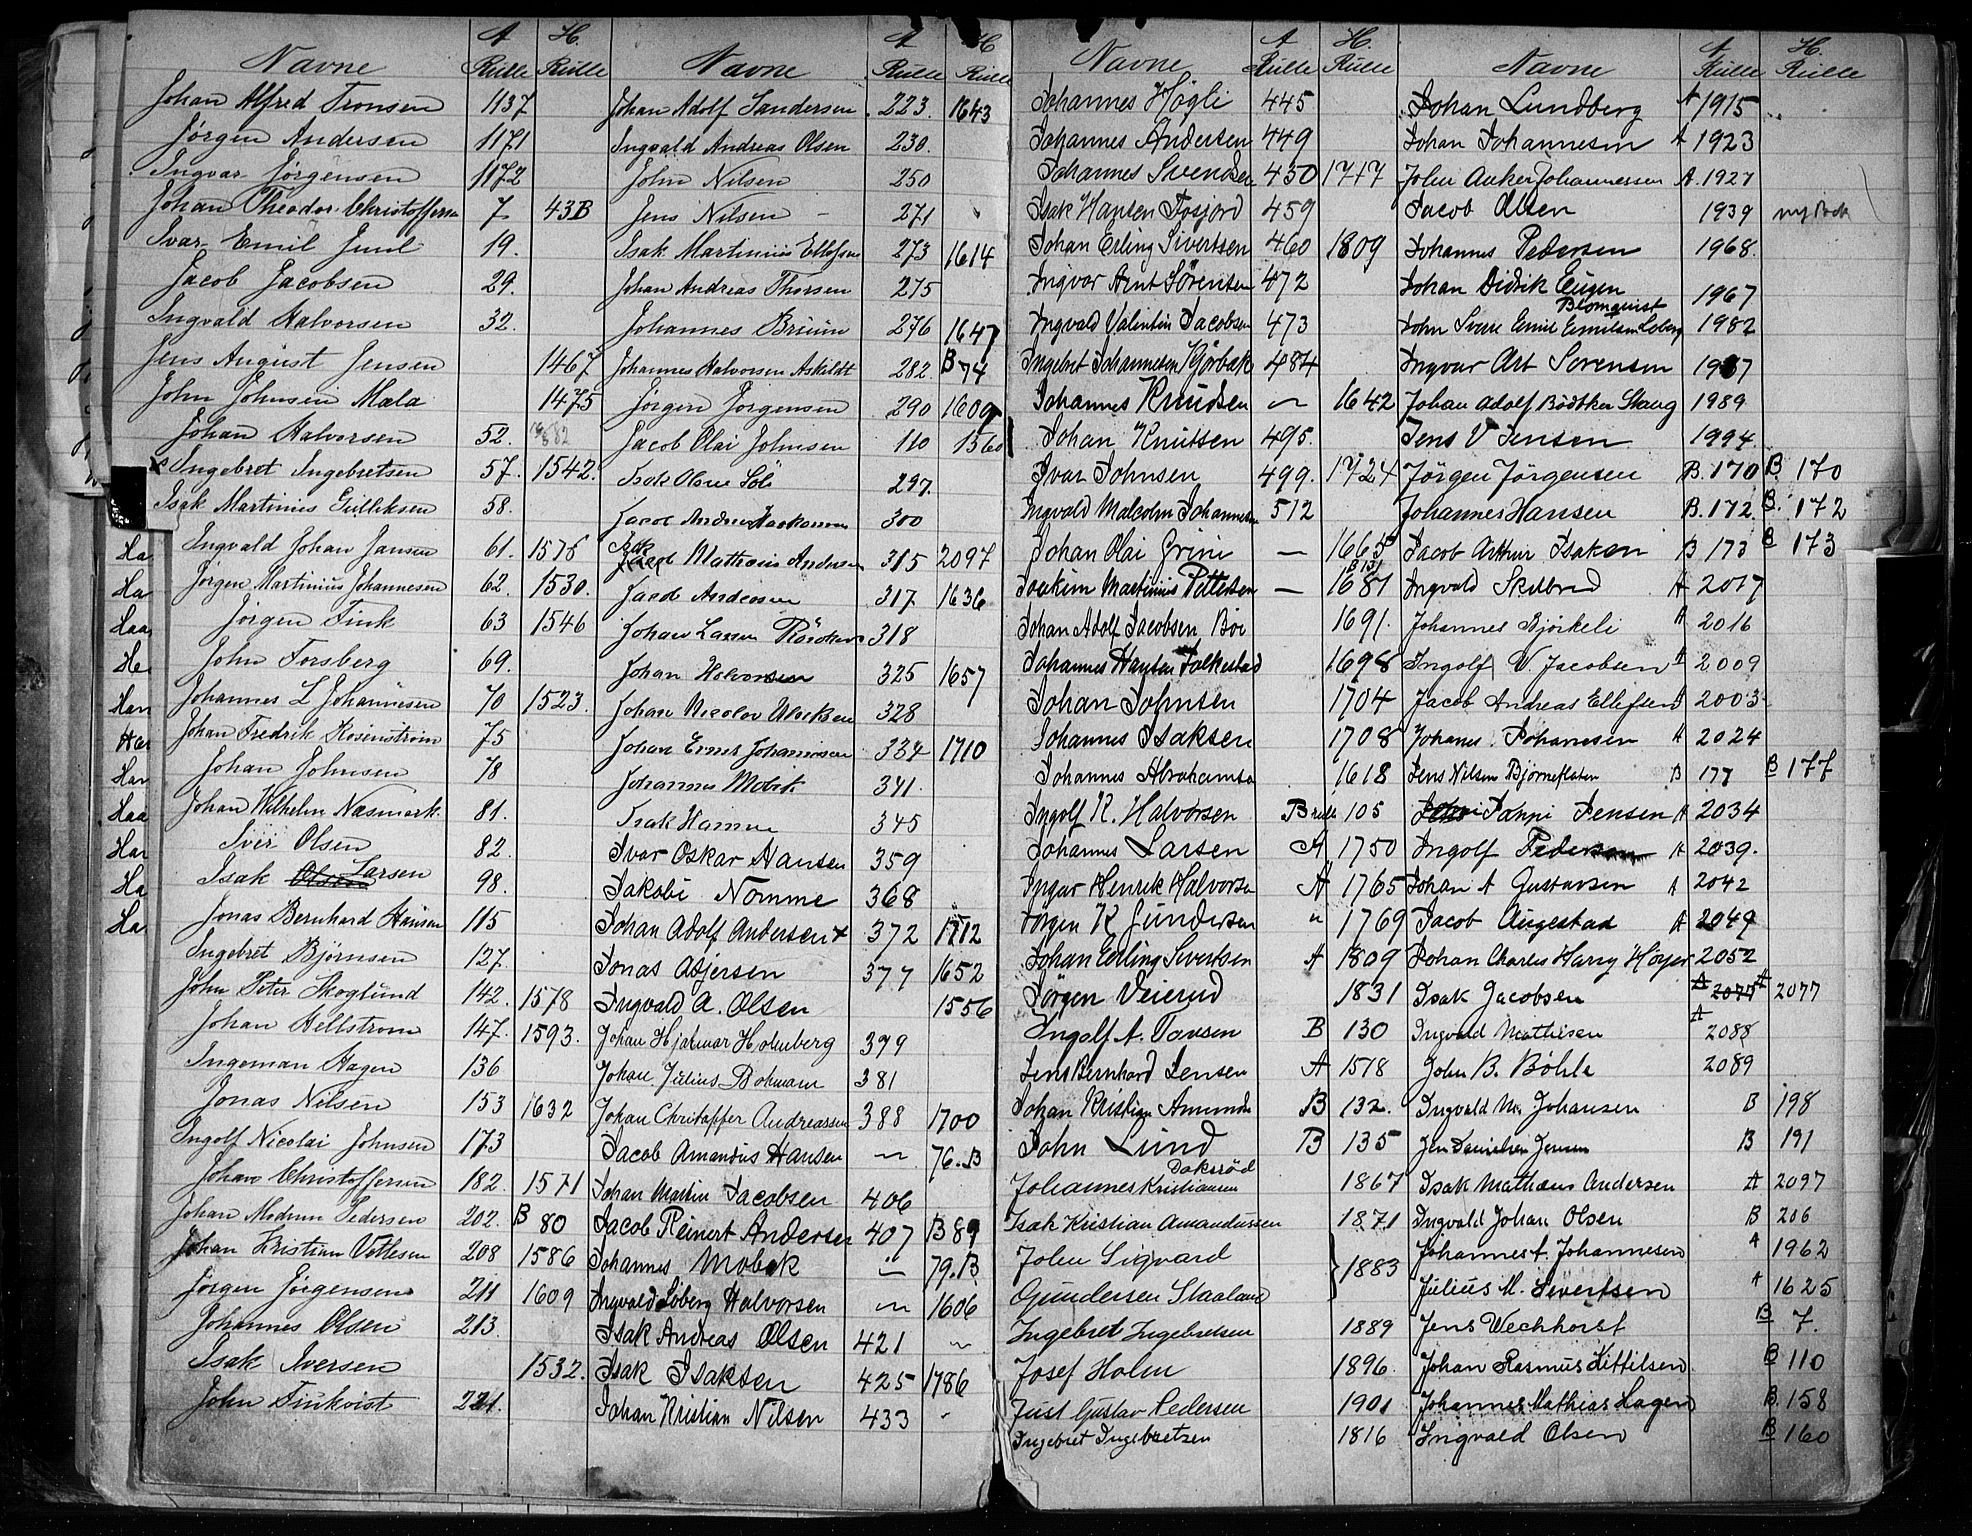 Navne A Rulle H. Rulle
Johan Alfred Tronsen 1137
Jørgen Andersen 1171
Ingvar Jørgensen 1172
Johan Theodor Christoffersen 7 43B
Ivar Emil Juul 19.
Jacob Jacobsen 29.
Ingvald Halvorsen 32.
Jens August Jensen 1467
John Johnsen Mæla 1475
Johan Halvorsen 52.
x Ingebret Ingebretsen 57. 1542.
Isak Martinius Gulliksen 58.
Ha Ingvald Johan Jansen 61. 1576
Ha Jörgen Martinius Johannesen 62. 1530.
Haa Jörgen Fink 63 1546
He John Forsberg 69.
Han Johannes L Johannesen 70 1523.
Har Johan Fredrik Rosenstrøm 75
Har Johan Johnsen 78
Haa Johan Wilhelm Næsmark 81.
Har Iver Olsen 82.
Ha Isak Larsen 98.
Ha Jonas Bernhard Hansen 115
Ingebret Bjørnsen 127.
John Peter Skoglund 142. 1578
Johan Hellstrøm 147. 1593.
Ingeman Hagen 136
Jonas Nilsen 153 1632
Ingolf Nicolai Johnsen 173
Johan Christoffersen 182. 1571
Johan Pedersen 202. B 80
Johan Kristian Vetlesen 208 1586
Jörgen Jörgensen 211 1609
Johannes Olsen 213.
Isak Iversen 1532.
John Finkvist 221.
Navne A Rulle H Rulle
Johan Adolf Sandersen 223. 1643
Ingvald Andreas Olsen 230.
John Nilsen 250
Jens Nilsen - 271
Isak Martinius Ellefsen 273 1614
Johan Andreas Thorsen 275
Johannes Bruun 276 1647
Johannes Halvorsen Askildt 282. B 74
Jørgen Jørgensen 290 1609
Jacob Olai Johnsen 110 1560
Isak Olsen 297.
Jacob Andreas 300
Isak Mathæus Andersen 315 2097
Jacob Andersen 317 1636
Johan Larsen 318
Johan Halvorsen 325 1657
Johan Nicolai 328
Johan Ernst Johannesen 334 1710
Johannes Mobæk 341.
Isak Hansen 345
Ivar Oskar Hansen 359
Jakobi Nomme 368
Johan Adolf Andersen x 372 1712
Jonas Asjersen 377 1652
Ingvald A. Olsen 1556
Johan Hjalmar Holmberg 379
Johan Julius Bohmann 381
Johan Christopffer Andreassen 388 1700
Jacob Amandus Hansen — 76.B
Johan Martin Jacobsen 406
Jacob Reinert Andersen 407 B 89
Johannes Mobæk — 79.B
Ingvald Soberg Halvorsen — 1606
Isak Andreas Olsen 421 ~
Isak Isaksen 425 1786
Johan Kristian Nilsen 433
Navne A Rulle H. Rulle
Johannes Høgli 445
Johannes Andersen 449
Johannes Svendsen 450 1777
Isak Hansen Fosjord 459
Johan Erling Sivertsen 460 1809
Ingvar Arnt Sörensen 472
Ingvald Valentin Jacobsen 473
Ingebret Johannesen Kjørbæk 484
Johannes Knudsen — 1642
Johan Knutsen 495.
Ivar Johnsen 499. 1724
Ingvald Malcolm Johannesen 512
Johan Olai Grini — 1665
B 131
Joakim Martinius Pettersen — 1681
Johan Adolf Jacobsen Boe 1691.
Johannes Hansen Falkestad 1698
Johan Johnsen 1704
Johannes Isaksen 1708
Johannes Abrahamsen 1618
Ingolf R. Halvorsen B rulle 105
Johannes Larsen A 1750
Ingvar Henrik Halvorsen A 1765
Jørgen K Gundersen " 1769
Johan Erling Sivertsen A 1809
Jørgen Veierud 1831
Ingolf A. Tovsen B 130
Jens Bernhard Jensen A 1578
Johan Kristian Amunds B 132.
John Lund B 135
Johannes Kristiansen Doksrød 1867
Isak Kristian Amandussen 1871
John Sigvard
Gundersen Staaland } 1883
Ingebret Ingebretsen 1889
Josef Holm 1896.
Just Gustav Pedersen 1901
Ingebret Ingebretsen 1816
Navne A Rulle H. Rulle
Johan Lundberg A 1915
Johan Johannesen A 1923
John Anker Johannessen A. 1927
Jacob Olsen 1939
Johannes Pedersen 1968.
Johan Didrik Eugen
Blomquist 1967
John Sverre Emil Emilsen Soberg 1982
Ingvar Art Sørensen 1987
Johan Adolf Bödtker Skaug 1989
Jens V Jensen 1994
Jörgen Jörgensen B. 170 B. 170
Johannes Hansen B. 172. B. 172
Jacob Arthur Isaksen B 173 B 173
Ingvald Skilbred A 2017
Johannes Bjørkeli A 2016
Ingolf V. Jacobsen A 2009
Jacob Andreas Ellefsen A 2003
Johans. Johansen A 2024
Jens Nilsen Bjørneflaten B 177 B 177
Jenni Jensen A 2034
Ingolf Pedersen A 2039.
Johan A Gustavsen A 2042
Jacob Augestad A 2049
Johan Charles Harry Höyer 2052
Isak Jacobsen A 2075 A 2077
Ingvald Mathisen A 2088
John B. Böhle 2089
Ingvald M. Johansen B 198
Jens Danielsen Jensen B 191
Isak Mathæus Andersen A 2097
Ingvald Johan Olsen B 206
Johannes A. Johannesen A 1962
Julius M. Sivertsen A 1625
Jens Wechhorst B 7.
Johan Rasmus Kittilsen B 110
Johannes Mathias Hagen B. 158
Ingvald Olsen B 160